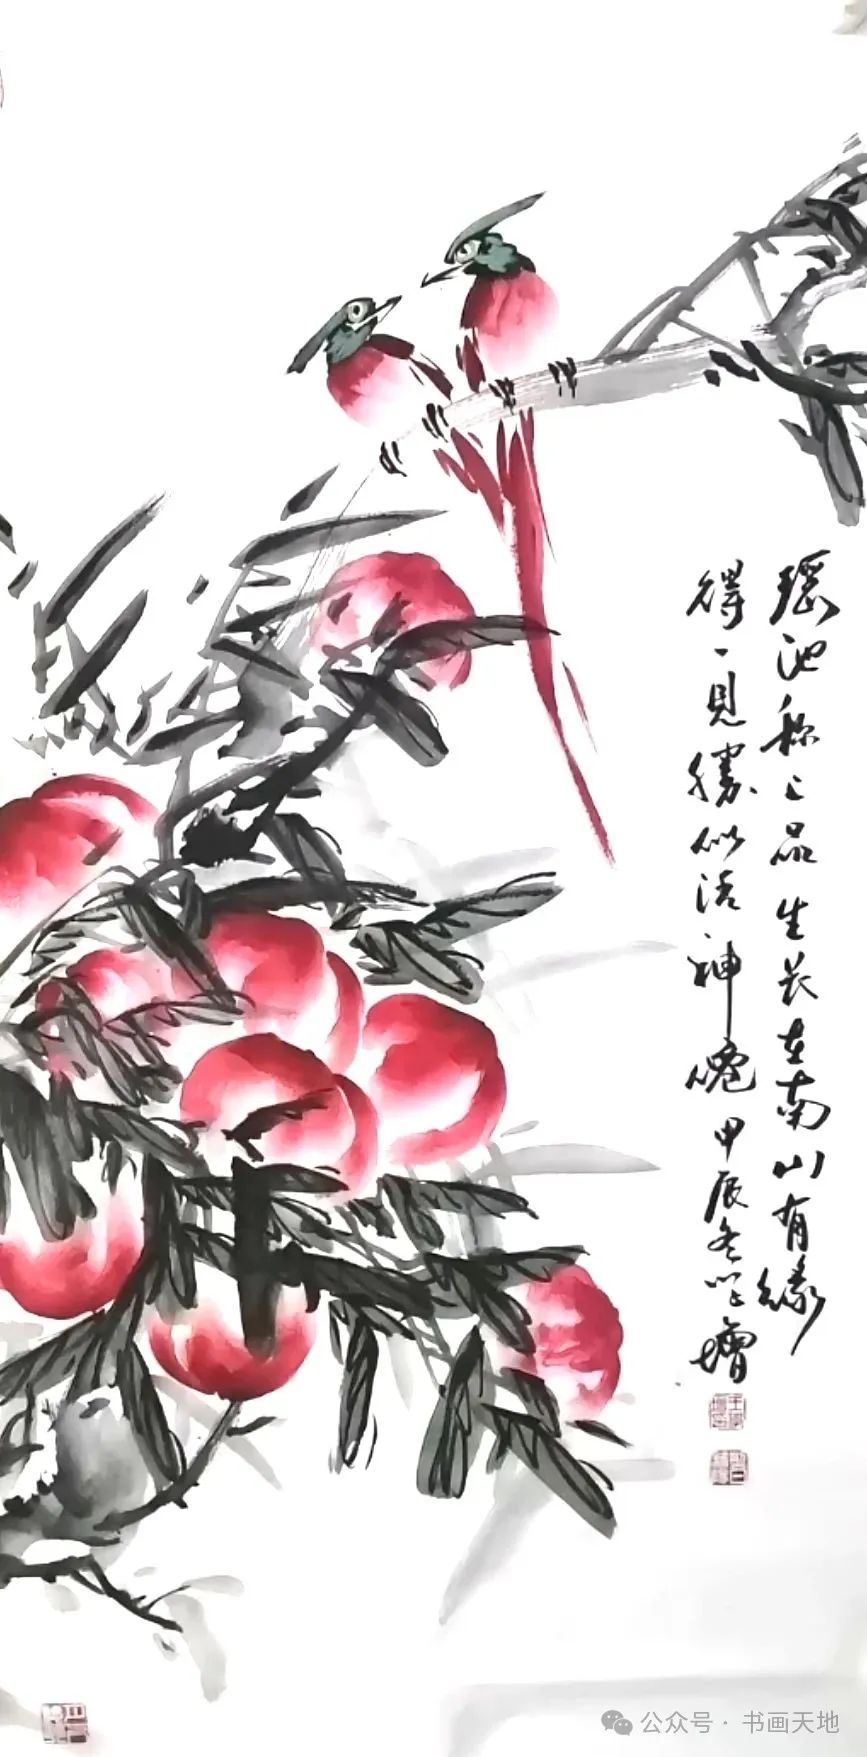 瑶池称上品生长在南山有缘
得一見勝似活神仙甲辰冬
公众号·书画天地